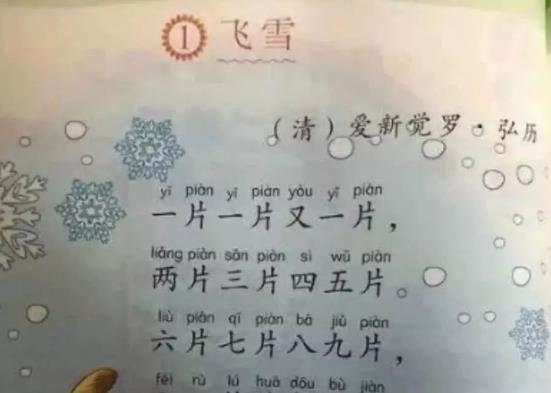 1 飞雪
（清）爱新觉罗·弘历
yī piàn yī piàn yòu yī piàn
一片一片又一片，
liǎng piàn sān piàn sì wǔ piàn
两片三片四五片。
liù piàn qī piàn bā jiǔ piàn
六片七片八九片，
fēi rù lú huā dōu bù jiàn